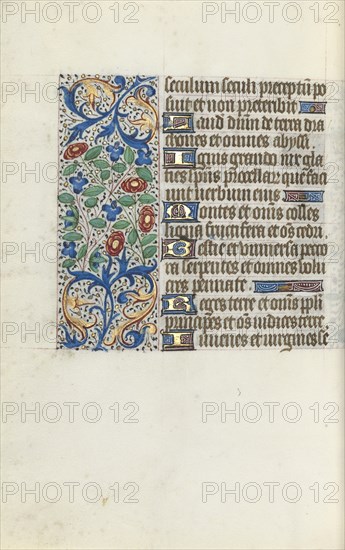 PHOTO 12 PHOTO 12
seculum seculi preceptū po
suit et non preteribit
Laud dnm de terra dra
cones et omnes abyssi
Ignis grando nix gla
cies spūs procellar que faci
unt verbum eius
Montes et omēs colles
ligna fructifera et om̄s cedri
Bestie et universa peco
ra serpentes et omnes volu
cres pennate
Reges terre et om̄s ppli
principes et om̄s iudices terre
Iuvenes et virgines se
PHOTO 12 PHOTO 12
PHOTO 12 PHOTO 12
PHOTO 12 PHOTO 12
PHOTO 12 PHOTO 12
PHOTO 12 PHOTO 12